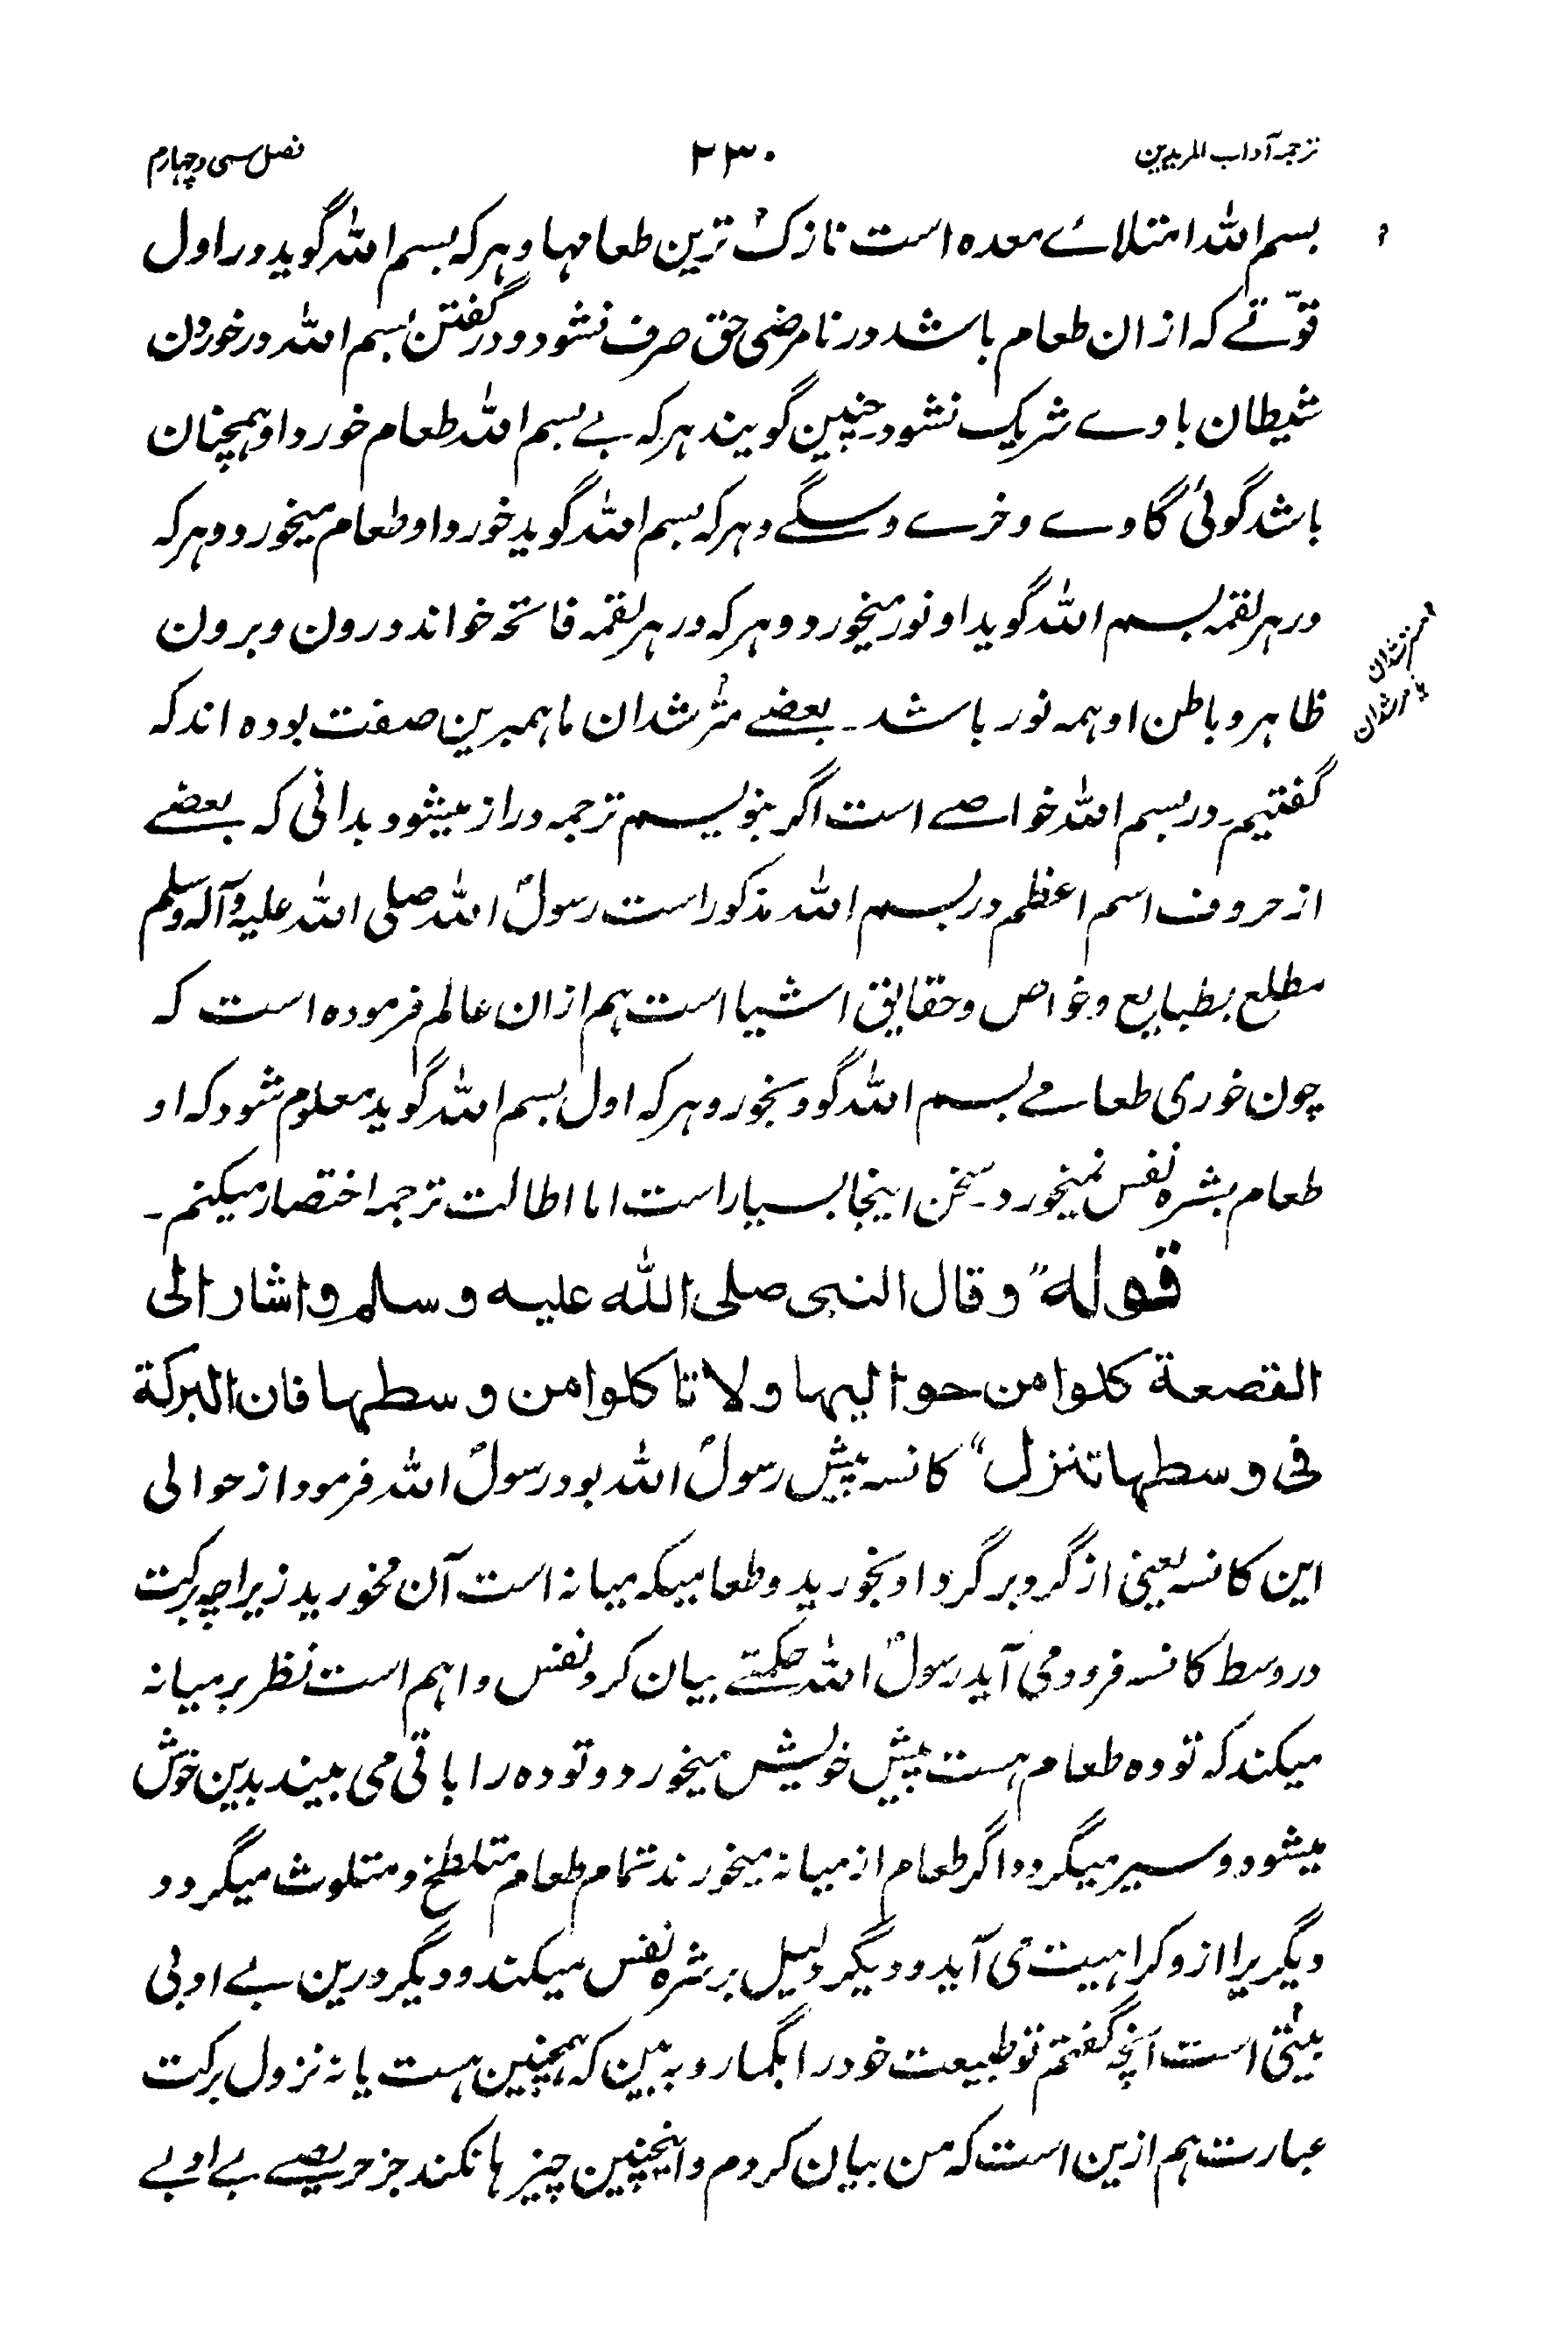 ترجمہ آداب المریدین ۲۳۰ فصل سی وچہارم
بسم اللہ امتلاے معدہ است نازک ترین طعامہا و ہرکہ بسم اللہ گوید در اول
قوّتے کہ ازان طعام باشد در نامرضی حق صرف نشود و در گفتن بسم اللہ در خوردن
شیطان باوے شریک نشود۔ چنین گویند ہرکہ بے بسم اللہ طعام خورد او ہمچنان
باشد گوئی گاوے و خرے و سگے و ہرکہ بسم اللہ گوید خورد او طعام میخورد و ہرکہ
در ہر لقمہ بسم اللہ گوید او نور میخورد و ہرکہ در ہر لقمہ فاتحہ خواند درون و برون
ظاہر و باطن او ہمہ نور باشد۔ بعضے مرشدان ما ہمبرین صفت بودہ اند کہ
گفتیم۔ در بسم اللہ خواصے است اگر بنویسم ترجمہ دراز میشود بدانی کہ بعضے
از حروف اسم اعظم در بسم اللہ مذکور است رسولؐ اللہ صلی اللہ علیہ وآلہ وسلم
مطلع بطبایع و خواص و حقایق اشیا است ہم ازان عالم فرمودہ است کہ
چون خوری طعامے بسم اللہ گو و بخور و ہرکہ اول بسم اللہ گوید معلوم شود کہ او
طعام بشرہ نفس نمیخورد۔ سخن اینجا بسیار است اما اطالت ترجمہ اختصار میکنم۔
قولہ ”وقال النبی صلی اللہ علیہ وسلم واشار الی
القصعة کلوا من حوالیہا ولا تاکلوا من وسطہا فان البرکة
فی وسطہا تنزل“ کانسہ پیش رسولؐ اللہ بود رسولؐ اللہ فرمود از حوالی
این کانسہ یعنی از گرد برگرد او بخورید و طعامیکہ میانہ است آن مخورید زیراچہ برکت
در وسط کانسہ فرود می آید رسولؐ اللہ حکمتے بیان کرد نفس واہم است نظر بر میانہ
میکند کہ تودہ طعام ہست پیش خویش میخورد و تودہ را باقی می بیند بدین خوش
میشود و سیر میگردد اگر طعام از میانہ میخورند تمام طعام متلطخ و متلوث میگردد
دیگریرا ازو کراہیت می آید و دیگر دلیل بر شرہ نفس میکند و دیگر درین بے ادبی
بیّنی است آنچہ گفتم تو طبیعت خود را بگمار و بہ بین کہ ہمچنین ہست یا نہ نزول برکت
عبارت ہم ازین است کہ من بیان کردم و اینچنین چیزہا نکند جز حریصے بے ادبے